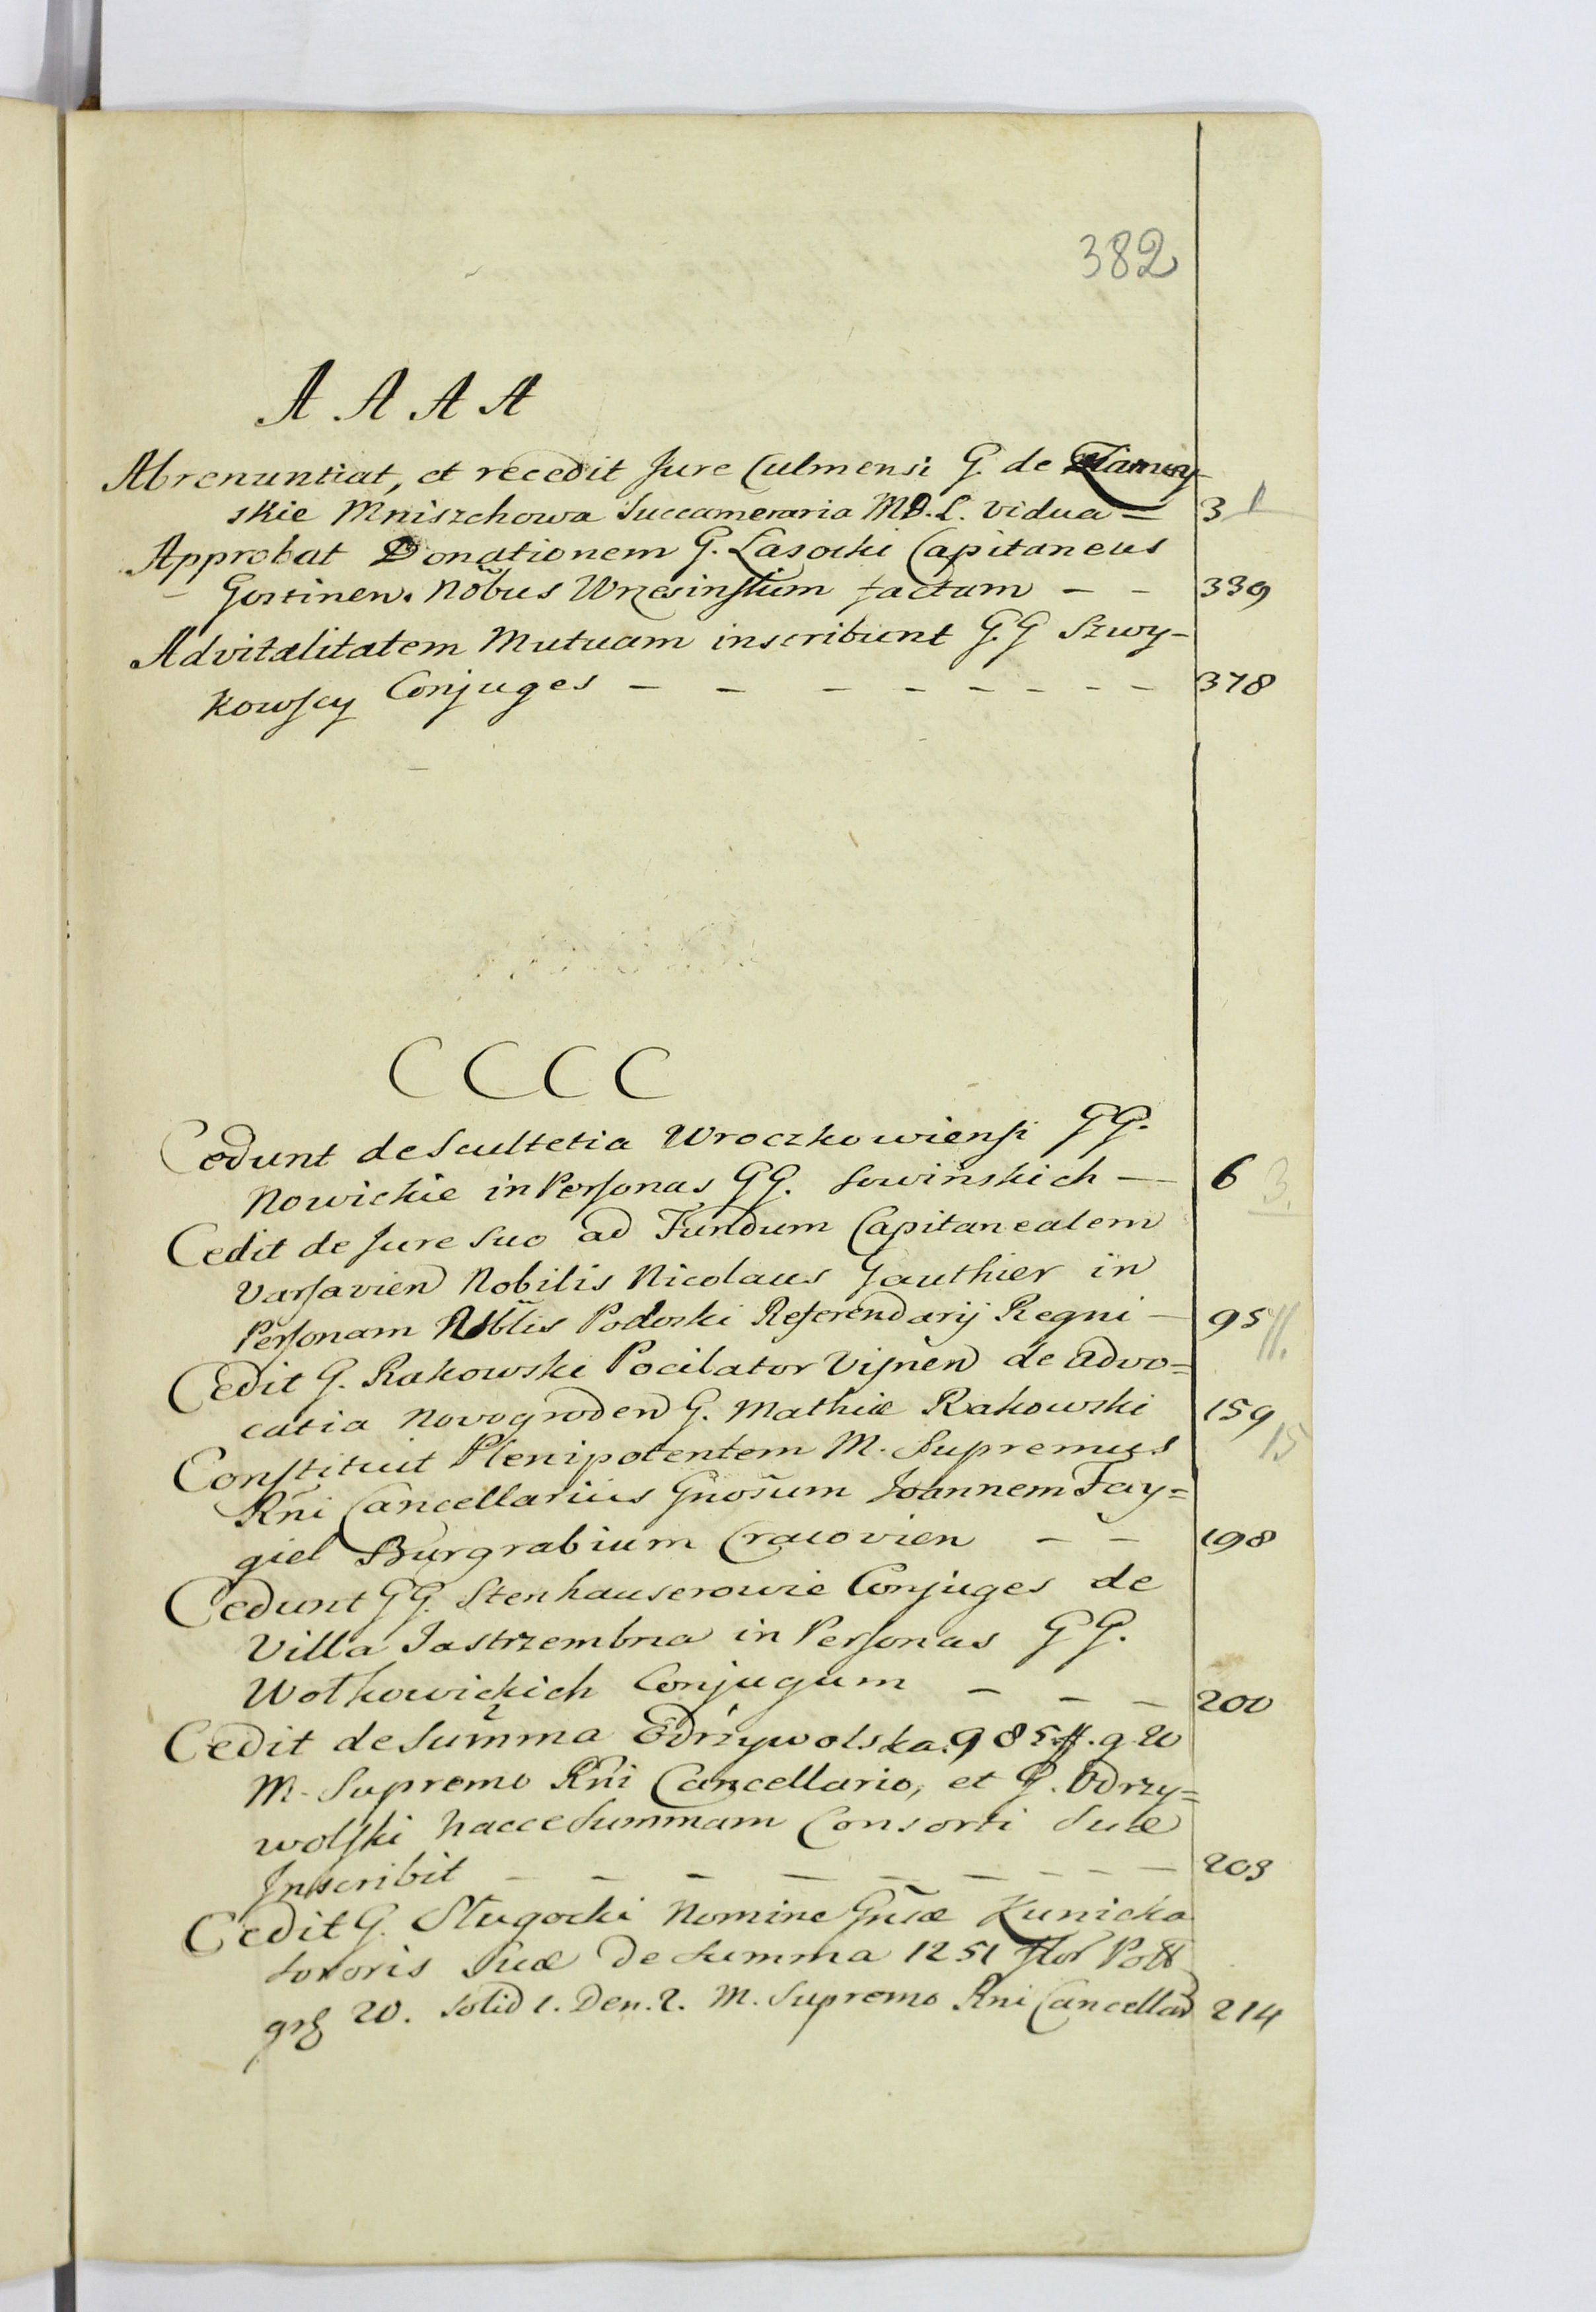 382
A A A A
Abrenuntiat, et recedit Jure Culmensi G. de Zamoy
skie Mniszchowa Succameraria M.D.L. vidua = 3 1
Approbat Donationem G. Lasocki Capitaneus
Gostinen. Nõbus Wrzesinskim factam - - 339
Advitalitatem Mutuam inscribunt G.G Szwy-
kowscy Conjuges - - - - - - - - 378
C C C C
Cedunt de Scultetia Wroczkowiensi GG.
Nowickie in Personas GG. Sowinskich - 6 3.
Cedit de Jure Suo ad Fundum Capitanealem
Varsavien Nobilis Nicolaus Gauthier in
Personam Podoski Referendarij Regni - 95 11.
Cedit G. Rakowski Pocilator Visnen de Advo=
catia Novogroden G. Mathiæ Rakowski 159 15
Constituit Plenipotentem M. Supremus
Rñi Cancellarius Gñosum Joannem Fay=
giel Burgrabium Cracovien - - 198
Cedunt GG. Stenhauserowie Conjuges de
Villa Jastrzembna in Personas GG.
Wolkowickich Conjugum - - - 200
Cedit de Summa Odrzywolska 985 ff. g. 20
M. Supremo Rñi Cancellario, et G. Odrzy=
wolski hacce Summam Consorti Suæ
Inscribit - - - - - - - - - 203
Cedit G. Slugocki Nomine Gñsæ Kunicka
Sororis Suæ de Summa 1251 flor Poll
grs 20. Solid 1. Den. 2. M. Supremo Rñi Cancellar 214